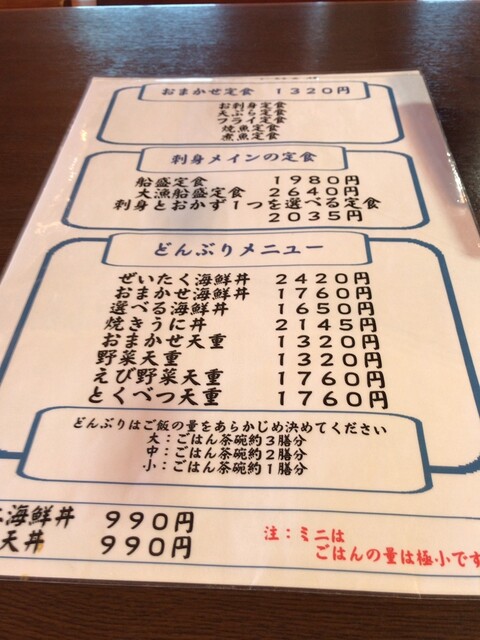 おまかせ定食 1320円
お刺身定食
天ぷら定食
フライ定食
焼魚定食
煮魚定食
刺身メインの定食
船盛定食 1980円
大漁船盛定食 2640円
刺身とおかず1つを選べる定食
2035円
どんぶりメニュー
ぜいたく海鮮丼 2420円
おまかせ海鮮丼 1760円
選べる海鮮丼 1650円
焼きうに丼 2145円
おまかせ天重 1320円
野菜天重 1320円
えび野菜天重 1760円
とくべつ天重 1760円
どんぶりはご飯の量をあらかじめ決めてください
大:ごはん茶碗約3膳分
中:ごはん茶碗約2膳分
小:ごはん茶碗約1膳分
海鮮丼 990円
天丼 990円
注:ミニは
ごはんの量は極小です